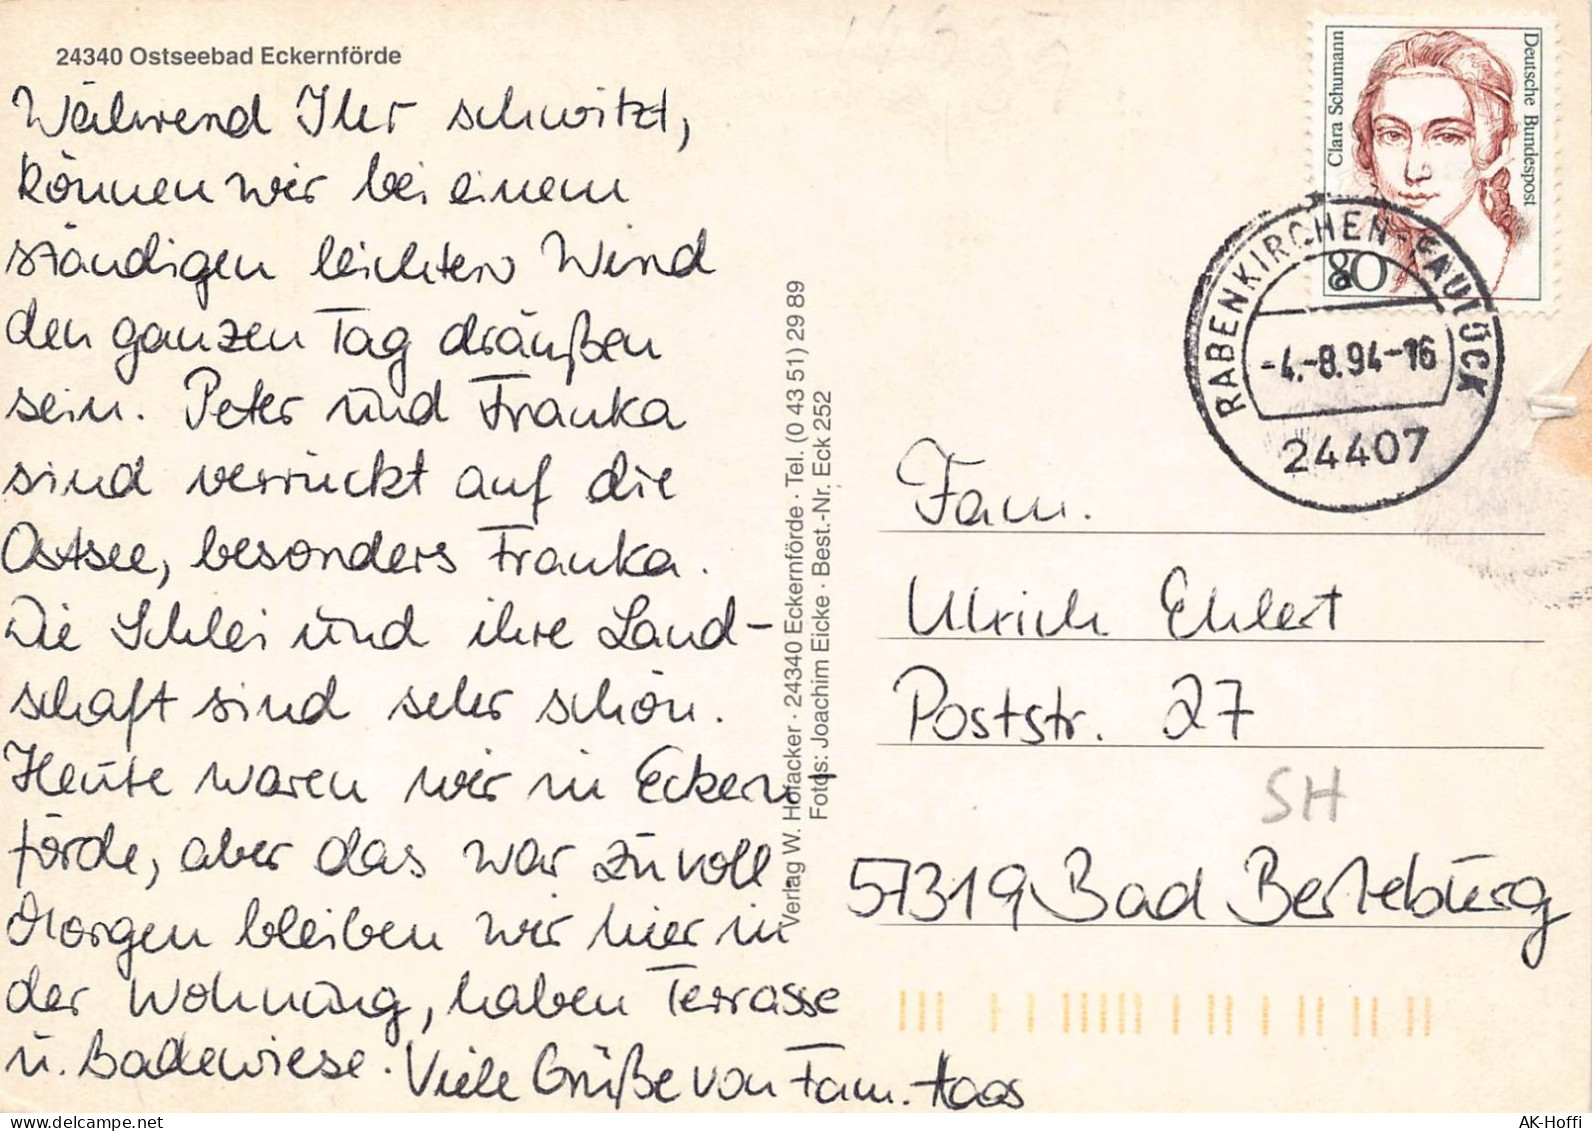 24340 Ostseebad Eckernförde
Während Ihr schwitzt,
können wir bei einem
ständigen leichten Wind
den ganzen Tag draußen
sein. Peter und Franka
sind verrückt auf die
Ostsee, besonders Franka.
Die Schlei und ihre Land-
schaft sind sehr schön.
Heute waren wir in Eckern
förde, aber das war zu voll
Morgen bleiben wir hier in
der Wohnung, haben Terrasse
u. Badewiese. Viele Grüße von Fam. Haas
Verlag W. Hofacker · 24340 Eckernförde · Tel. (0 43 51) 29 89
Fotos: Joachim Eicke · Best.-Nr. Eck 252
Clara Schumann
Deutsche Bundespost
80
RABENKIRCHEN-FAULÜCK
-4.-8.94-16
24407
Fam.
Ulrich Ehlert
Poststr. 27
SH
57319 Bad Berleburg
AK-Hoffi